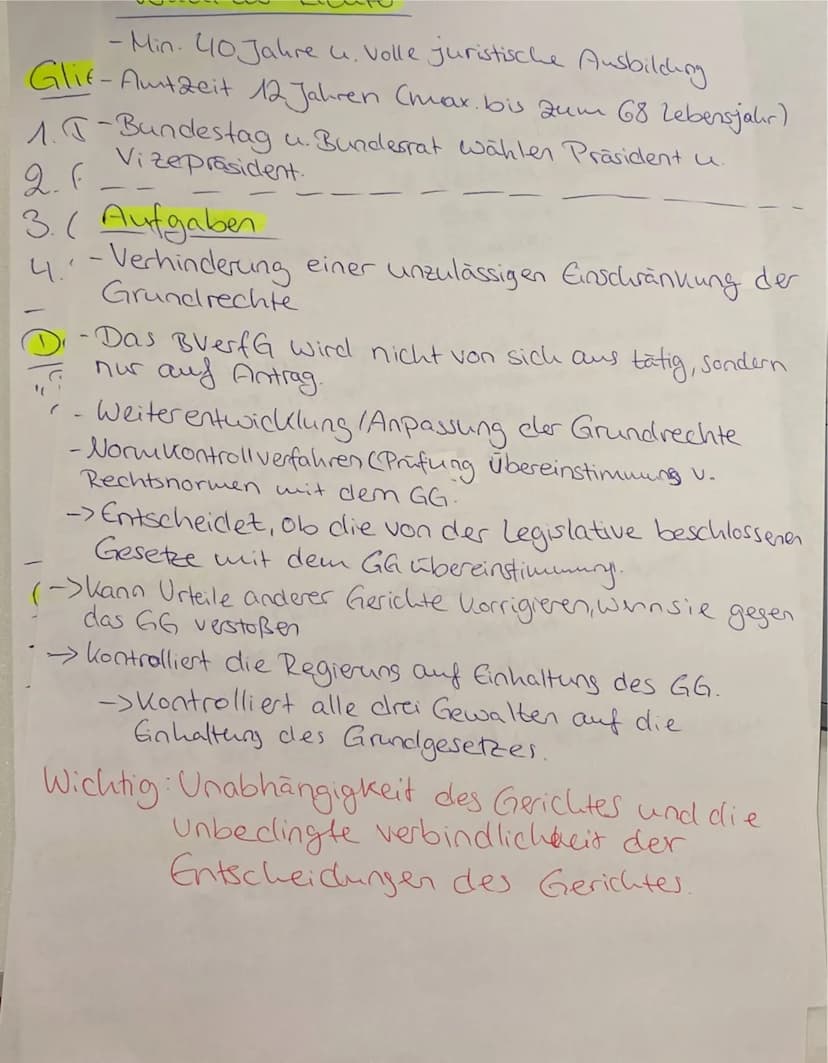 - Min. 40 Jahre u. volle juristische Ausbildung
- Amtzeit 12 Jahren (max. bis zum 68 Lebensjahr)
- Bundestag u. Bundesrat wählen Präsident u.
Vizepräsident.
Aufgaben
- Verhinderung einer unzulässigen Einschränkung der
Grundrechte
- Das BVerfG wird nicht von sich aus tätig, sondern
nur auf Antrag.
- Weiterentwicklung/Anpassung der Grundrechte
- Normkontrollverfahren (Prüfung Übereinstimmung v.
Rechtsnormen mit dem GG.
-> Entscheidet, ob die von der Legislative beschlossenen
Gesetze mit dem GG übereinstimmung.
-> Kann Urteile anderer Gerichte korrigieren, wenn sie gegen
das GG verstoßen
-> Kontrolliert die Regierung auf Einhaltung des GG.
-> Kontrolliert alle drei Gewalten auf die
Einhaltung des Grundgesetzes.
Wichtig: Unabhängigkeit des Gerichtes und die
unbedingte verbindlichkeit der
Entscheidungen des Gerichtes.
Gli
1.
2.
3.
4.
1